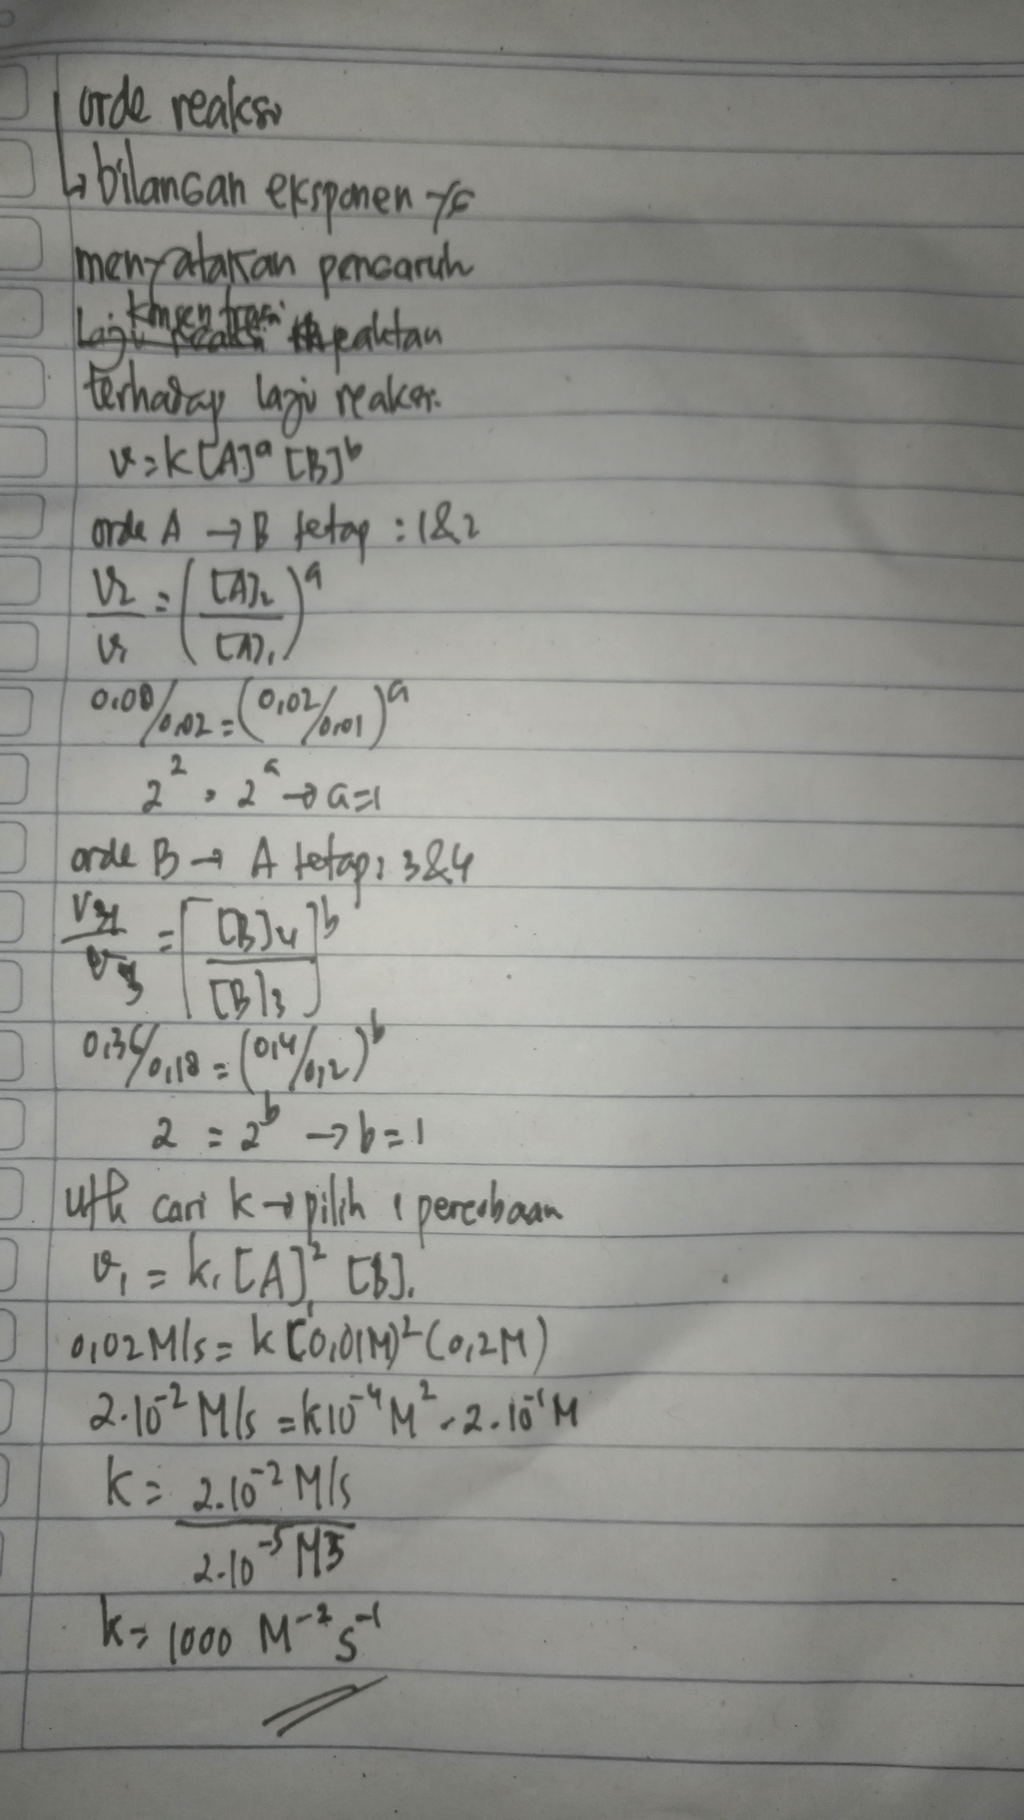 orde reaksi
↳ bilangan eksponen yg
menyatakan pengaruh
konsentrasi
reaktan
terhadap laju reaksi.
v = k [A]^a [B]^b
orde A → B tetap : 1&2
V2/V1 = ([A]2/[A]1)^a
0,08/0,02 = (0,02/0,01)^a
2^2 = 2^a → a=1
orde B → A tetap : 3&4
V4/V3 = [[B]4/[B]3]^b
0,36/0,18 = (0,4/0,2)^b
2 = 2^b → b=1
utk cari k → pilih 1 percobaan
v1 = k. [A]1^2 [B]1
0,02 M/s = k (0,01M)^2 (0,2M)
2.10^-2 M/s = k 10^-4 M^2 . 2.10^-1 M
k = 2.10^-2 M/s
2.10^-5 M3
k = 1000 M^-2 s^-1